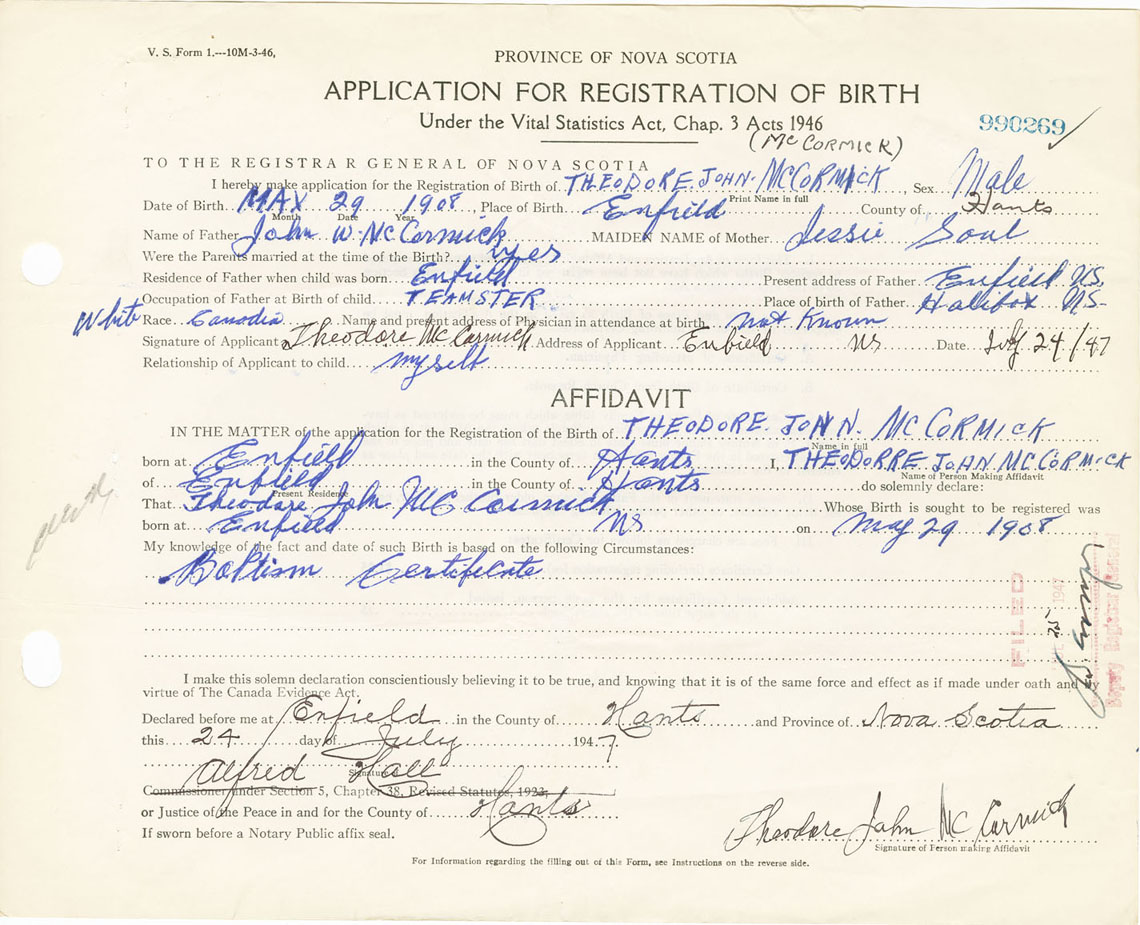 V. S. Form 1.---10M-3-46,
PROVINCE OF NOVA SCOTIA
APPLICATION FOR REGISTRATION OF BIRTH
Under the Vital Statistics Act, Chap. 3 Acts 1946
990269
(McCORMICK)
TO THE REGISTRAR GENERAL OF NOVA SCOTIA
I hereby make application for the Registration of Birth of THEODORE JOHN McCORMICK, Sex Male
Print Name in full
Date of Birth MAY 29 1908, Place of Birth Enfield County of Hants
Month Date Year
Name of Father John W. McCormick MAIDEN NAME of Mother Jessie Soul
Were the Parents married at the time of the Birth? yes
Residence of Father when child was born Enfield Present address of Father Enfield NS.
Occupation of Father at Birth of child TEAMSTER Place of birth of Father Halifax NS-
White Race Canadia Name and present address of Physician in attendance at birth Not Known
Signature of Applicant Theodore McCormick Address of Applicant Enfield NS Date July 24/47
Relationship of Applicant to child myself
AFFIDAVIT
IN THE MATTER of the application for the Registration of the Birth of THEODORE JOHN. McCORMICK
Name in full
born at Enfield in the County of Hants I, THEODORRE JOHN McCORMICK
Name of Person Making Affidavit
of Enfield in the County of Hants do solemnly declare:
Present Residence
That Theodore John McCormick Whose Birth is sought to be registered was
born at Enfield NS on May 29 1908
My knowledge of the fact and date of such Birth is based on the following Circumstances:
Baptism Certificate
FILED
Deputy Registrar General
I make this solemn declaration conscientiously believing it to be true, and knowing that it is of the same force and effect as if made under oath and by
virtue of The Canada Evidence Act.
Declared before me at Enfield in the County of Hants and Province of Nova Scotia
this 24 day of July 1947
Alfred Hall
Signature
Commissioner under Section 5, Chapter 38, Revised Statutes, 1923,
or Justice of the Peace in and for the County of Hants
If sworn before a Notary Public affix seal.
Theodore John McCormick
Signature of Person making Affidavit
For Information regarding the filling out of this Form, see Instructions on the reverse side.